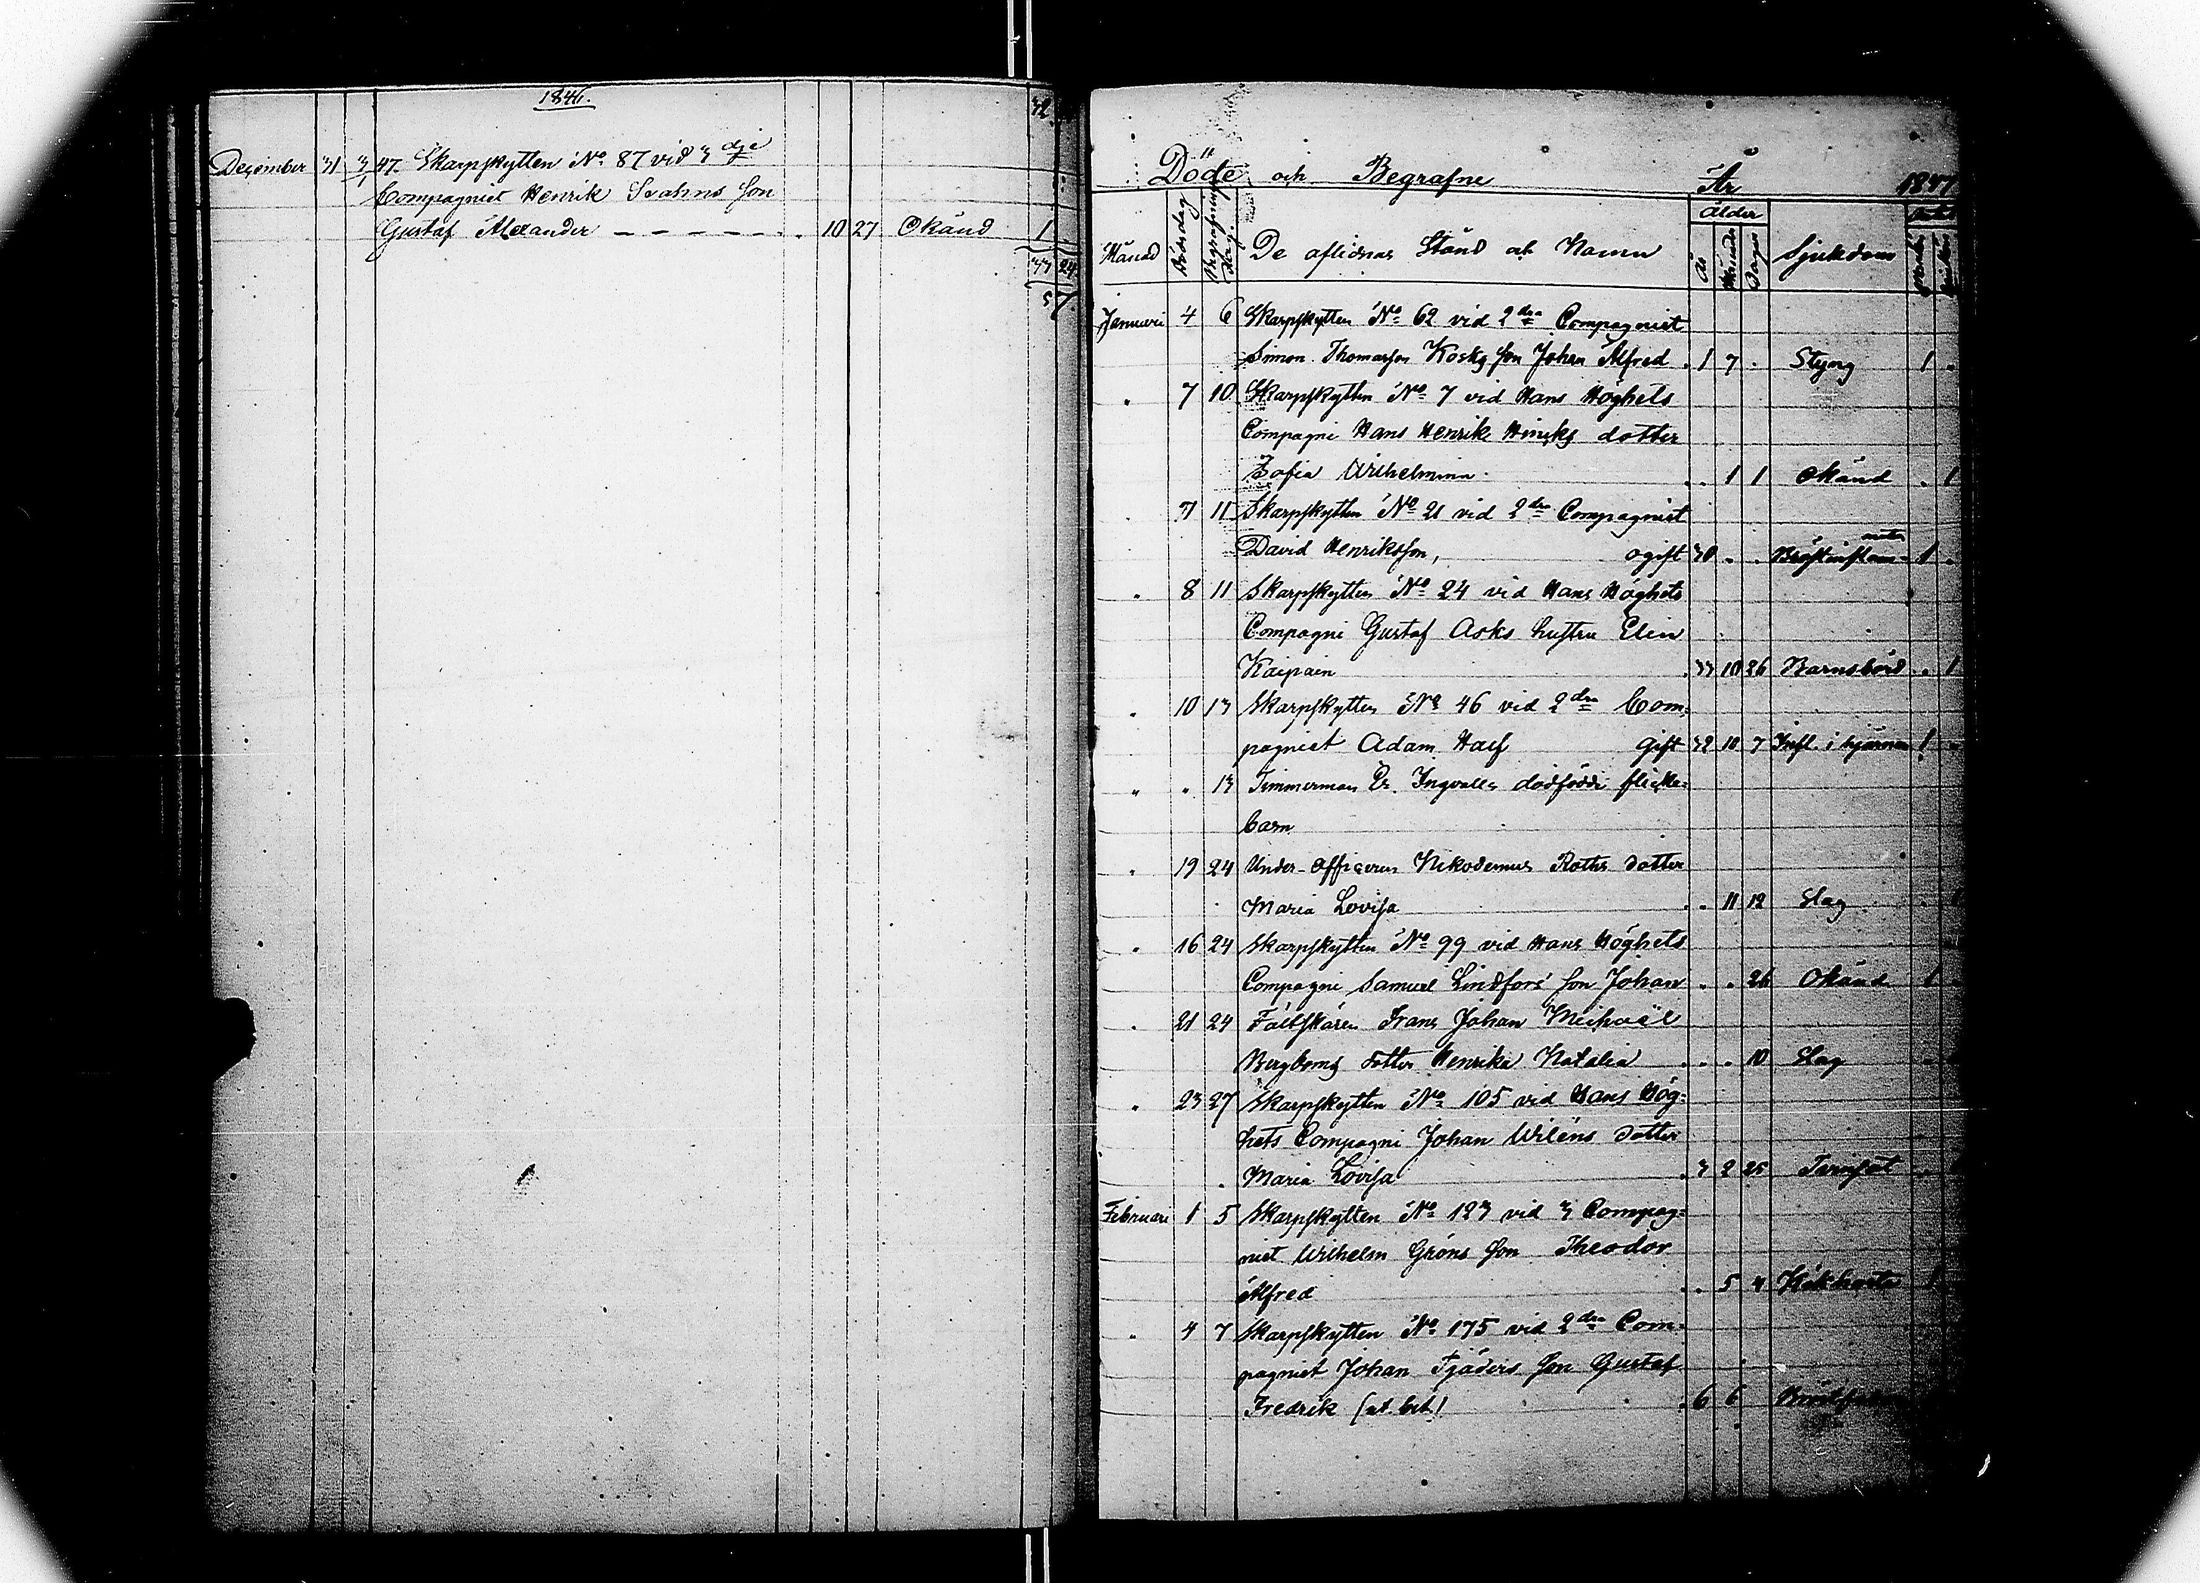 1846.
32
December 31 3/1 47. Skarpskytten No 87 vid 3dje
Compagniet Henrik Svahns son
Gustaf Alexander – – – – – 10 27 Okänd 1
33 24
57.
Döde och Begrafne År 1847
Månad Dödsdag Begrafningsdag De aflidnas Stånd och Namn Ålder År Månader Dagar Sjukdom
Januari 4 6 Skarpskytten No 62 vid 2dra Compagniet
Simon Thomasson Koskys son Johan Alfred . 1 7 . Styng 1 .
" 7 10 Skarpskytten No 7 vid Hans Höghets
Compagni Hans Henrik dotter
Sofia Wilhelmina . . 1 1 Okänd . 1
" 7 11 Skarpskytten No 21 vid 2dra Compagniet
David Henriksson, ogift 30 . . Bröstinflam=mation 1 .
" 8 11 Skarpskytten No 24 vid Hans Höghets
Compagni Gustaf Asks hustru Elin
Kaipain . 33 10 26 Barnsbörd . 1
" 10 13 Skarpskytten No 46 vid 2dra Com=
pagniet Adam Haef Gift 32 10 7 Infl. i hjärnan 1 .
" " 13 Timmerman Ingvalls dödfödde flicke=
barn
" 19 24 Under-officeren Nikodemus Roths dotter
Maria Lovisa . . 11 12 Slag
" 16 24 Skarpskytten No 99 vid Hans Höghets
Compagni Samuel Lindfors' son Johan . . 26 Okänd 1
" 21 24 Fältskären Frans Johan Michaël
Bergboms dotter Henrika Natalia . . . 10 Slag
" 23 27 Skarpskytten No 105 vid Hans Hög=
hets Compagni Johan Wiléns dotter
Maria Lovisa . 3 2 25
Februari 1 5 Skarpskytten No 123 vid 3 Compag=
niet Wilhelm Gröns son Theodor
Alfred . . 5 4 Kikhosta 1
" 4 7 Skarpskytten No 175 vid 2dra Com=
pagniet Johan Tjäders son Gustaf
Fredrik . 6 6